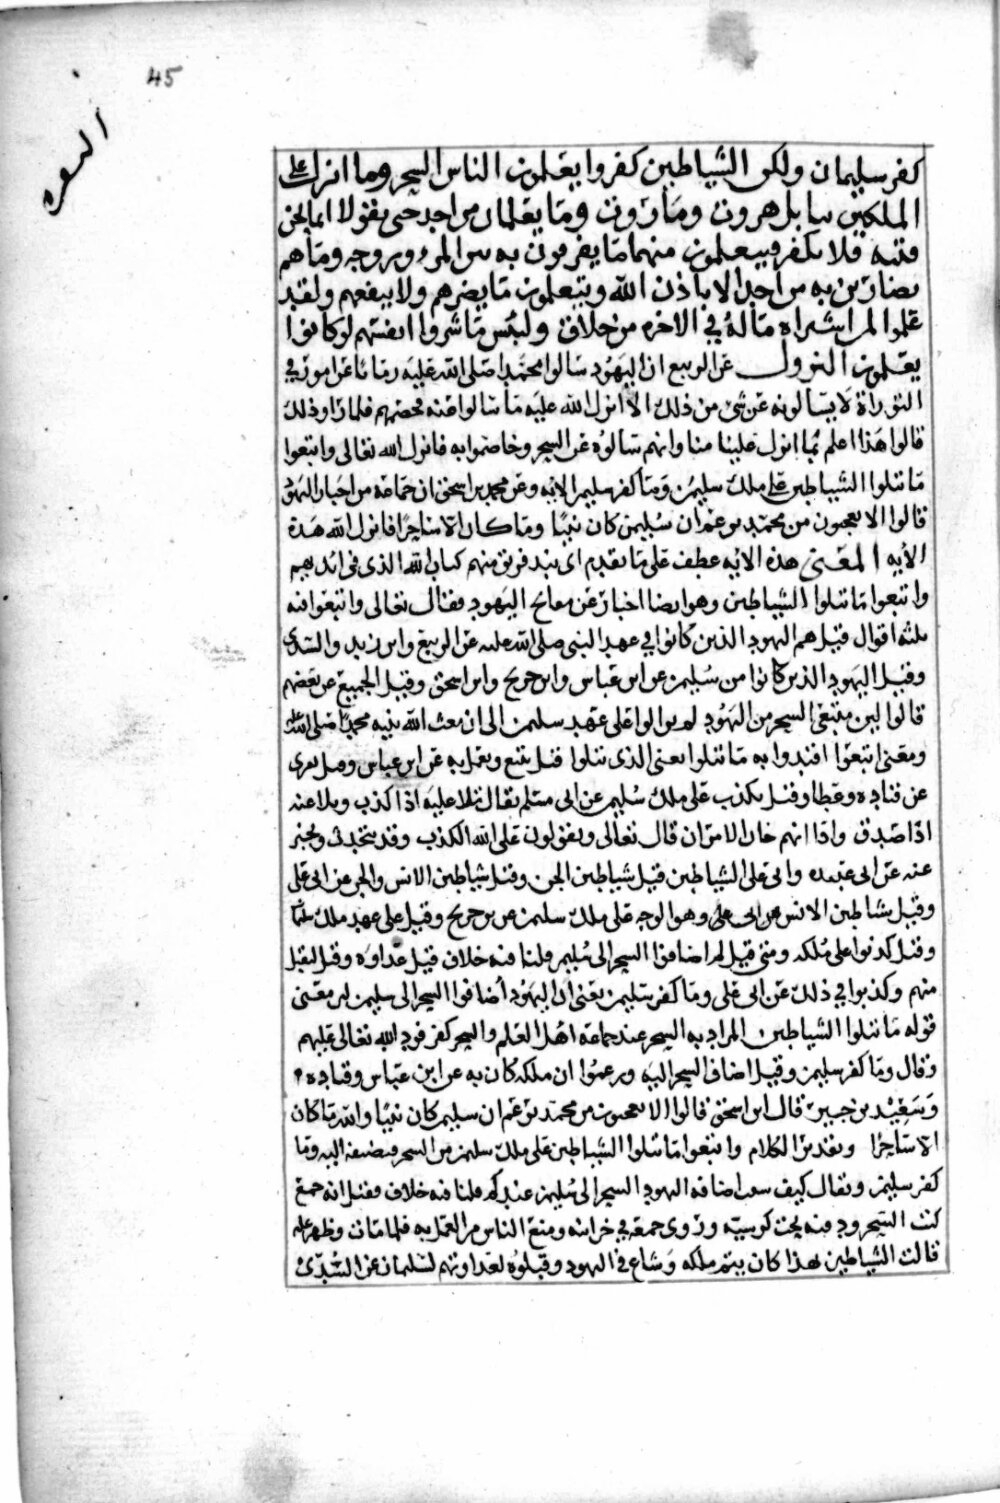 45
البقره
كفر سليمان ولكن الشياطين كفروا يعلمون الناس السحر وما انزل على
الملكين ببابل هروت ومَارَوت ومَا يعَلمان من احد حتى يقولا انما نحن
فتنه فلا تكفر فيتعلمون منهما مَا يفرقون به بين المرء وزوجه ومَا هم
بضارين به من احد الا باذن الله ويتعلمون مَا يضرهم ولا ينفعهم ولقد
علموا لمن اشتراه مَا لهُ في الاخره من خلاق ولبئس مَا شروا به انفسهم لو كانوا
يعَلمون النزول عن الربيع ان اليهَود سَالوا محمدا صلى الله عليه زمَانا عن امور في
التوراة لا يسَالونه عن شى من ذلك الا انزل الله عليه مَا سَالوا عنه فيخصمهم فلما رَاوا ذلك
قالوا هَذا اعلم بما انزل علينا منا وانهم سَالوه عن السحر وخاصموا به فانزل الله تعالى واتبعوا
مَا تتلوا الشياطين على ملك سليمن ومَا كفر سليمن الايه وعن محمد بن اسحق ان جماعة من احبار اليهود
قالوا الا تعجبون من محمد يزعم ان سليمن كان نبيًا ومَا كان الا سَاحرًا فانزل الله هذه
الأيه المعنى هذه الايه عطف على مَا تقدم اى نبذ فريق منهم كتاب الله الذى في ايديهم
واتبعوا مَا تتلوا الشياطين وهو ايضا اخبار عن قبايح اليهود فقال تعالى واتبعوا فيه
ثلثه اقوال قيل هم اليهود الذين كانوا في عهد النبي صلى الله عليه عن الربيع وابن زيد والسدى
وقيل اليهود الذين كانوا من سُليمن عن ابن عَباس وابن جريج وابن اسحق وقيل الجميع عن بعضهم
قالوا لان متبعى السحر من اليهود لم يزالوا على عهد سليمن الى ان بعث الله نبيه محمدًا صلى الله عليه
ومعنى اتبعوا اقتدوا به مَا تتلوا بعنى الذى تتلوا قيل تتبع وتعمل به عن ابن عباس وقيل تقرى
عن قتاده وعَطا وقيل تكذب على ملك سُليمن عن ابى مسلم يقال تلا عليه اذا كذب وتلا عنه
اذا صَدق واذا ابهم جَاز الامرَان قال تعالى ويقولون على الله الكذب وقد يتحدث ويخبر
عنه عن ابى عبيده وابى على الشياطين قيل شياطين الجن وقيل شياطين الانس والجن عن ابى على
وقيل شياطين الانس عن ابى على وهو الوجه على ملك سليمن عن بن جريج وقيل على عهد ملك سليمان
وقيل كذبوا على مُلكه ومتى قيل لم اضافوا السحر الى سُليمن قلنا فيه خلاف قيل عَداوَه وقيل ليقبل
منهم وكذبوا في ذلك عن ابى على ومَا كفر سليمن يعنى ان اليهَود اضَافوا السحر الى سليمن لان معنى
قوله مَا تتلوا الشياطين المراد به السحر عند جماعة اهل العلم والسحر كفر فرد الله تعالى عليهم
وقال ومَا كفر سليمن وقيل اضاف السحر اليه وزعموا ان ملكه كان به عن ابن عَباس وقتاده
وَسَعِيْد بن جبير قال ابن اسحق قالوا الا تعجبون من محمد يزعم ان سليمن كان نبيًا والله مَا كان
الا سَاحرًا وتقدير الكلام واتبعوا مَا تتلوا الشياطين على ملك سليمن من السحر فتضيفه اليه ومَا
كفر سليمن ويقال كيف سبب اضافه اليهود السحر الى سُليمن عندكم قلنا فيه خلاف فقيل انه جمع
كتب السَحر ودفنه تحت كرسيه ورَوى جمعه في خزانته ومنع الناس من العمل به فلما مَات وظهر عليه
قالت الشياطين بهذا كان يتم ملكه وَشاع في اليهود وقبلوُه لعداوتهم لسُليمان عن السُدّى